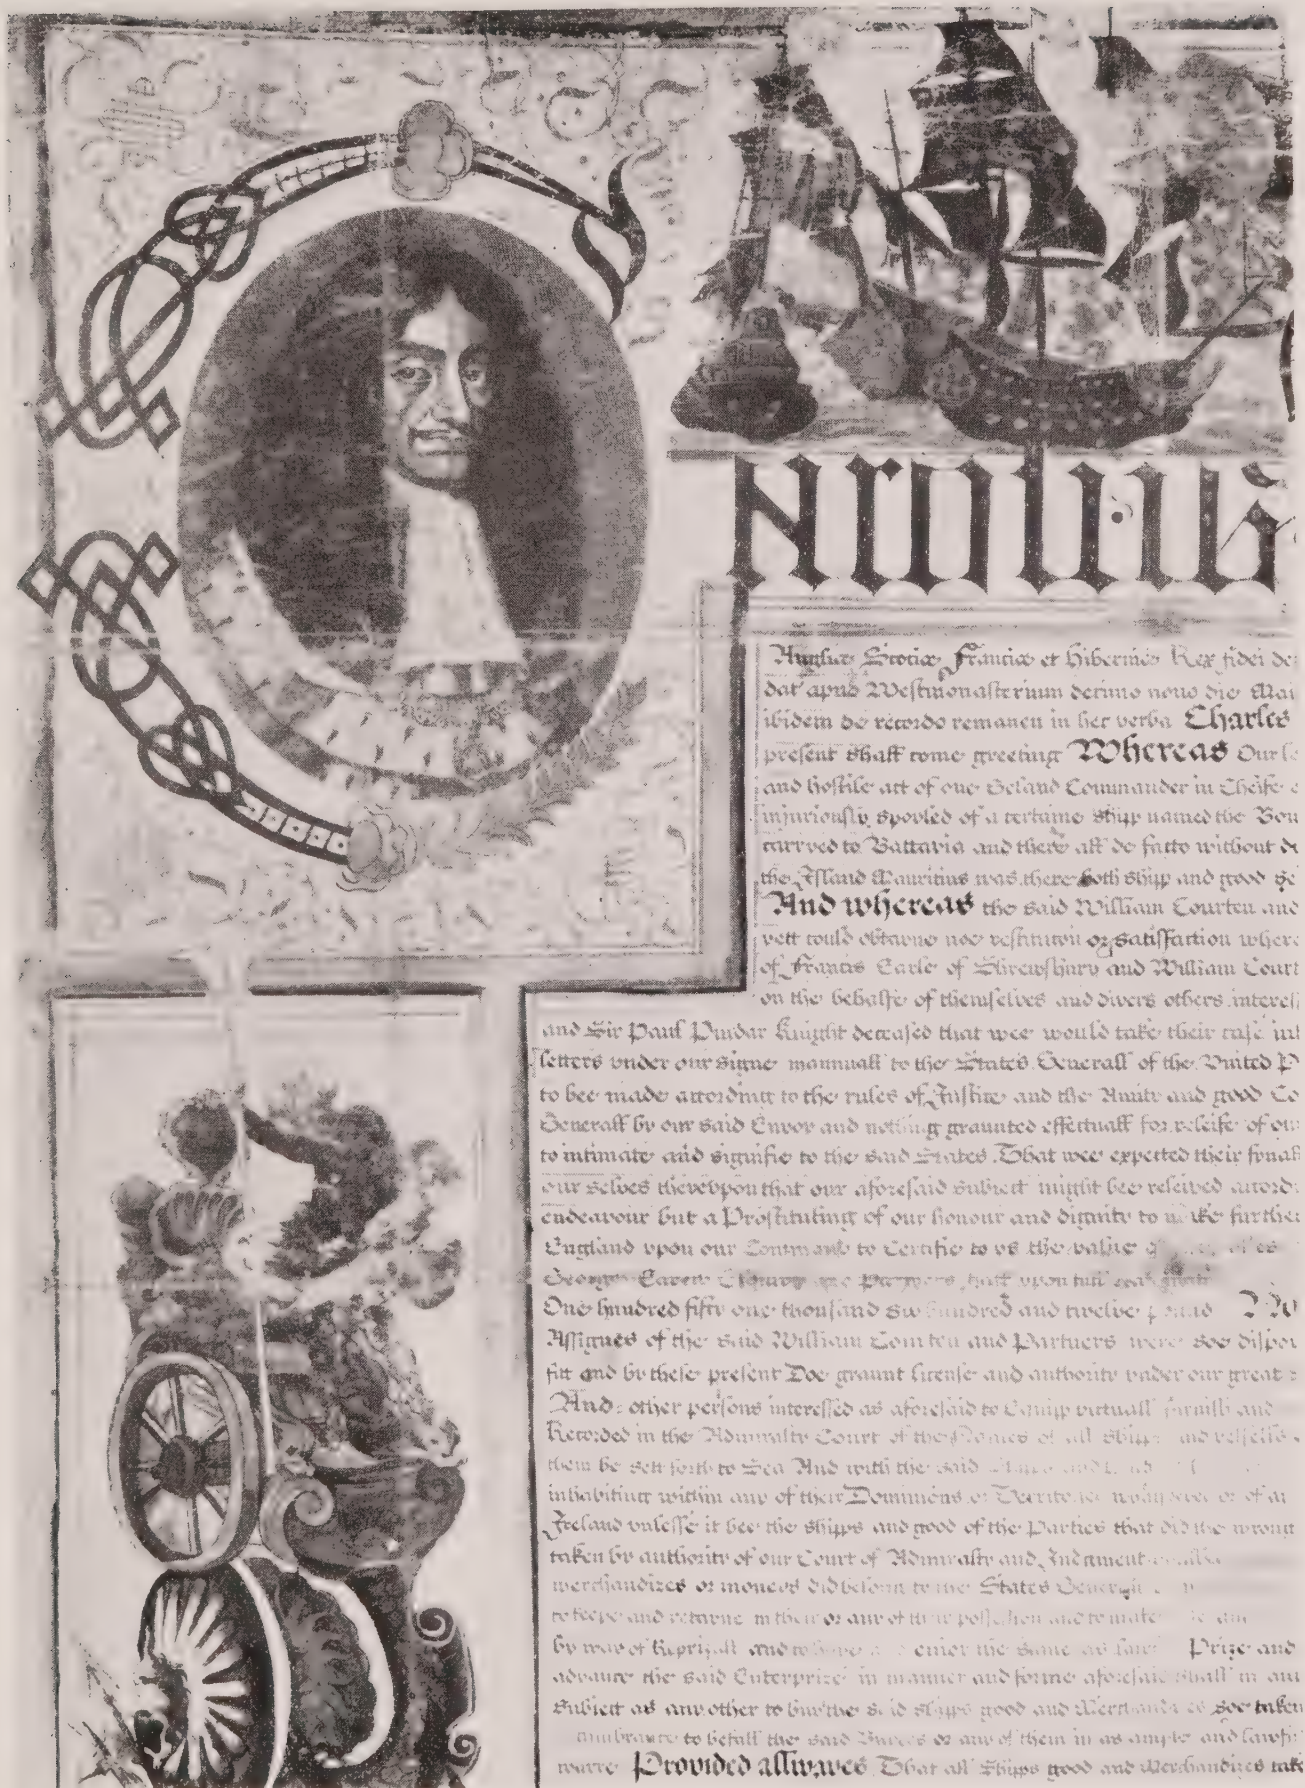 AROLUS
Angliæ Scotiæ Franciæ et Hiberniæ Rex fidei de
dat apud Westmonasterium decimo nono die Mai
ibidem de recordo remanen in hec verba Charles
present shall come greeting Whereas Our
and hostile act of one Geland Commander in Cheife
injuriously spoyled of a certaine shipp named the Bon
carryed to Battavia and there all de facto without
the Island Mauritius was there both shipp and good
And whereas the said William Courten and
yett could obtayne noe restituton or Satisfaction where
of Francis Earle of Shrewsbury and William Court
on the behalfe of themselves and divers others interes
and Sir Paul Pindar Knight deceased that wee would take their case int
letters under our signe manuall to the States Generall of the United P
to bee made according to the rules of Justice and the Amity and good Co
Generall by our said Envoy and nothing graunted effectuall for releife of our
to intimate and signifie to the said States That wee expected their finall
our selves therevpon that our aforesaid Subiect might bee releived accord
endeavour but a Prostituting of our honour and dignity to make further
England vpon our Command to Certifie to vs the value
George Carew
One hundred fifty one thousand Six hundred and twelve pound
Assignes of the said William Courten and Partners were soe dispo
fitt and by these present Doe graunt license and authority vnder our great
And other persons interessed as aforesaid to Equipp victuall furnish and
Recorded in the Admiralty Court of the Names of all Shipps and vessells
them be sett forth to Sea And with the said
inhabiting within any of their Dominions or Territo
Ireland vnlesse it bee the shipps and good of the Parties that did the wrong
taken by authority of our Court of Admiralty and Judgment
merchandizes or moneys did belong to the States Generall
to keepe and retayne in their or any of their possession and to make
by way of Reprizall and to have enioy the same as lawf Prize and
advance the said Enterprize in manner and forme aforesaid shall in
Subiect as any other to buy the said shipps good and Merchandizes soe taken
to befall the said Buyers or any of them in as ample and lawf
Provided allwayes That all Shipps good and Merchandizes